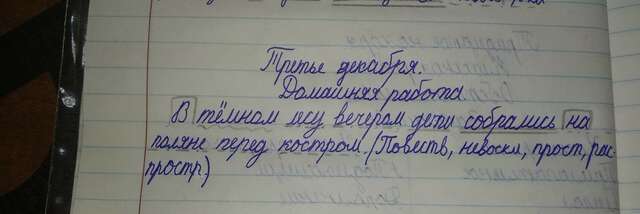 Третье декабря.
Домашняя работа
В тёмном лесу вечером дети собрались на
поляне перед костром. (Повеств, невоскл, прост, рас
простр.)